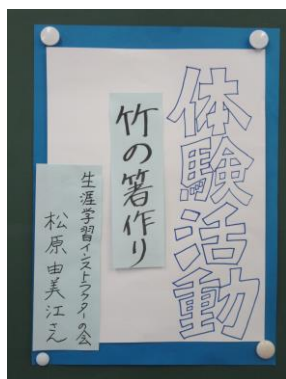 体験活動
竹の箸作り
生涯学習インストラクターの会
松原由美江さん